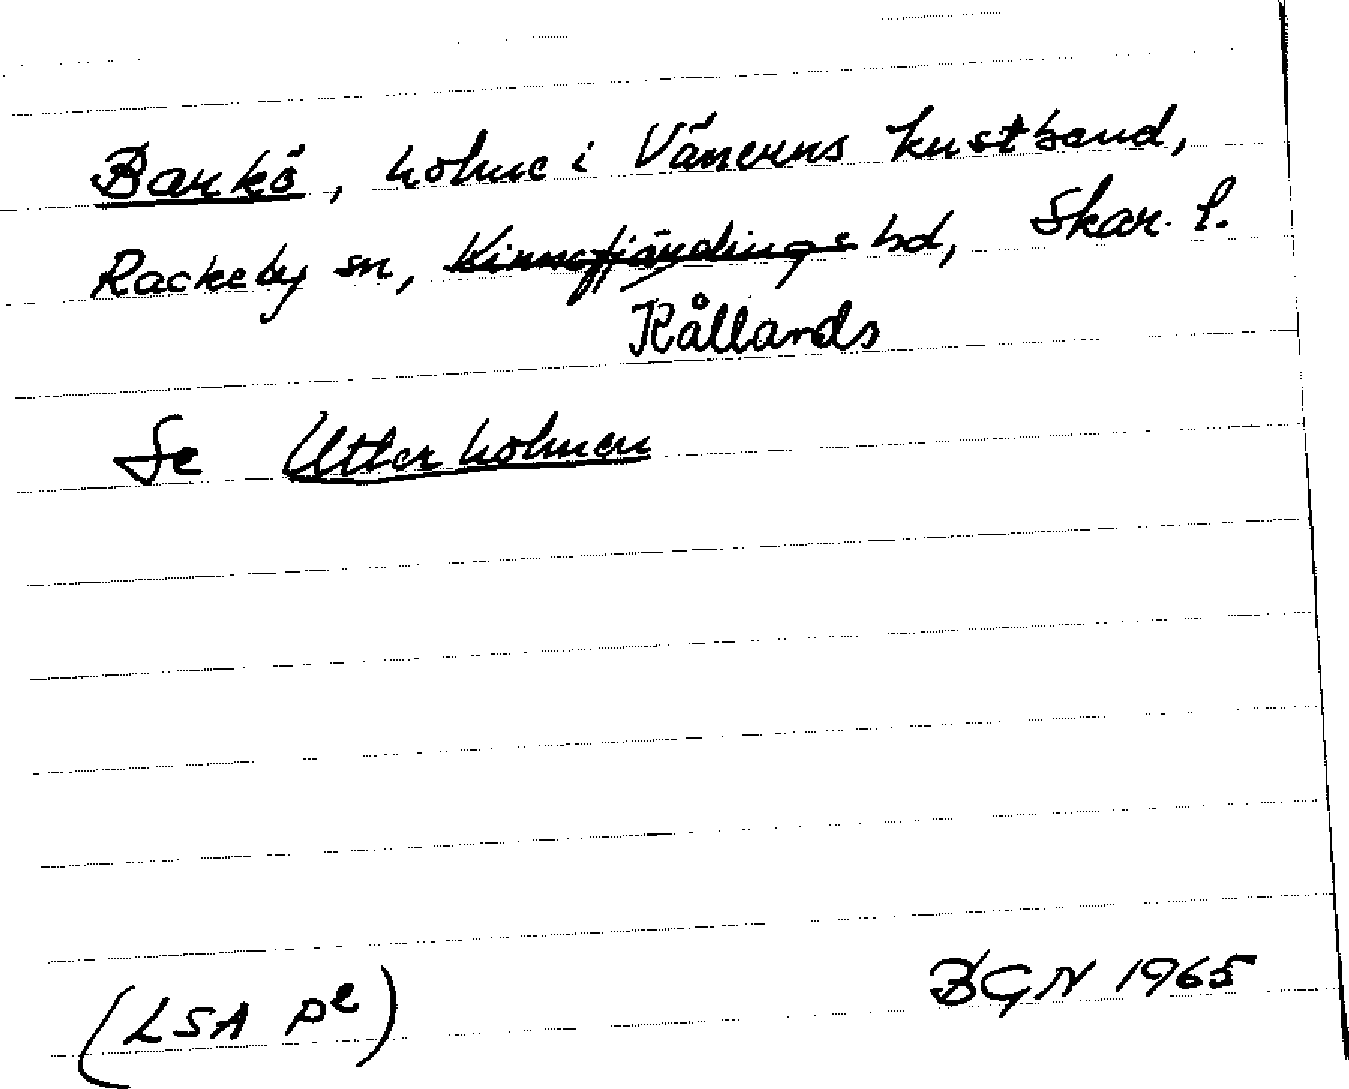 Barkö, holme i Vänerns kustband,
Rackeby sn, Kinnefjärdings hd, Skar. l.
Kållands
Se Utterholmen
(LSA P²)
BGN 1965